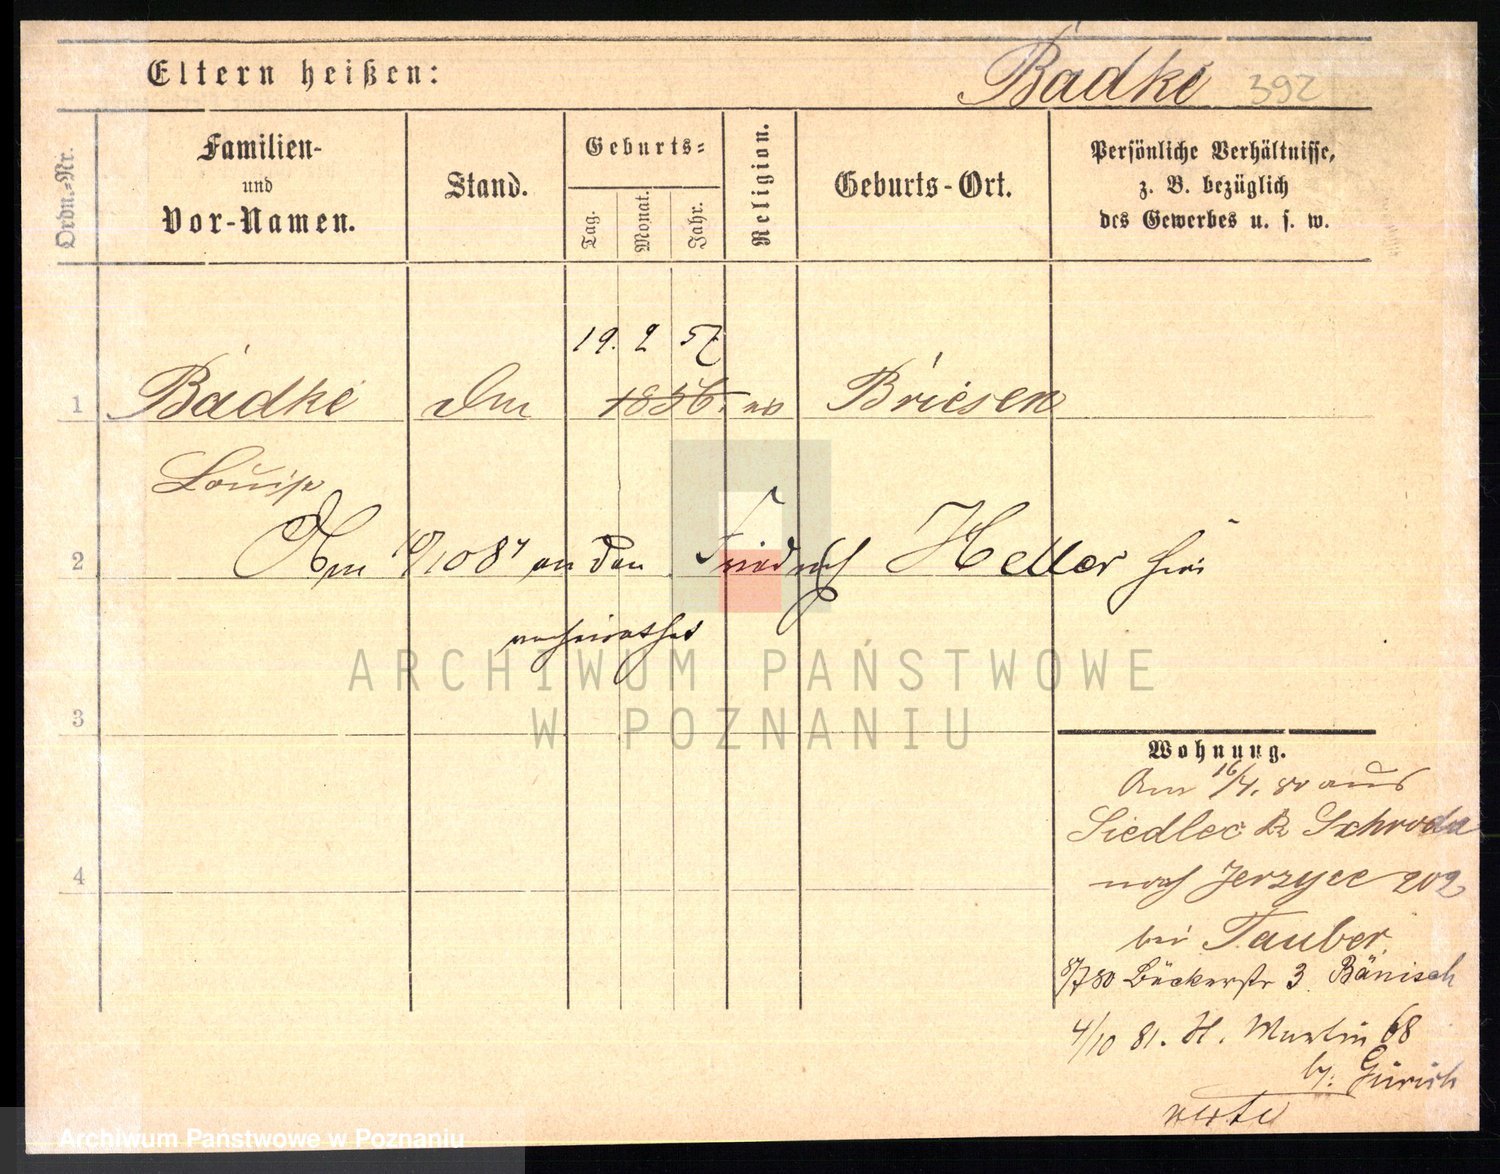 Eltern heißen:
Badke 392
Ordn.-Nr.
Familien-
und
Vor-Namen.
Stand.
Geburts-
Tag.
Monat.
Jahr.
Religion.
Geburts-Ort.
Persönliche Verhältnisse,
z. B. bezüglich
des Gewerbes u. s. w.
19. 2 57
1 Badke 1856. Briesen
Louise
2 Am an den Friedrich Heller hier
verheirathet
ARCHIWUM PAŃSTWOWE
W POZNANIU
3
Wohnung.
Am 16/4. 80 aus
Siedlec Schroda
nach Jerzyce 202
bei Tauber.
8/7 80 Bäckerstr 3 Bänisch
4
4/10 81. St. Martin 68
by. Gürich
verte
Archiwum Państwowe w Poznaniu